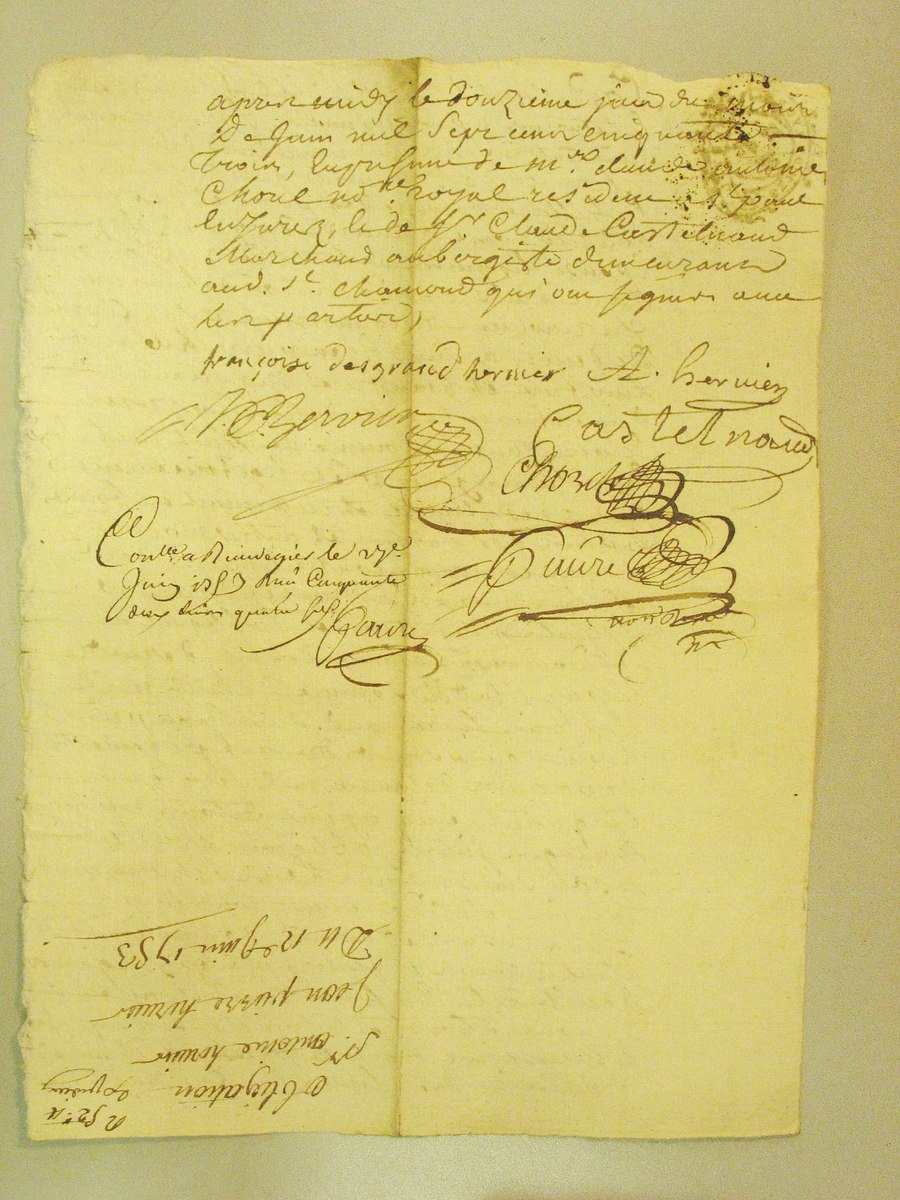 apres midy le douzieme jour du mois
De Juin mil Sept cent cinquante
trois, En presence de m.re claude antoine
Chorel no.re royal resident a s.t paul
En Jarez, & de S.r Claude Castelnaud
Marchand aubergiste demeurant
aud. s.t chamond qui ont signes avec
les parties,
françoise desgrand hervier A. hervier
hervier
Castelnaud
Chorel
Con.lle a Rivedegier le
Juin 1753 Reçu Cinquante
deux livres quatre
favre
Du 12e Juin 1753
Jean pierre hervier
S.r antoine hervier
obligation